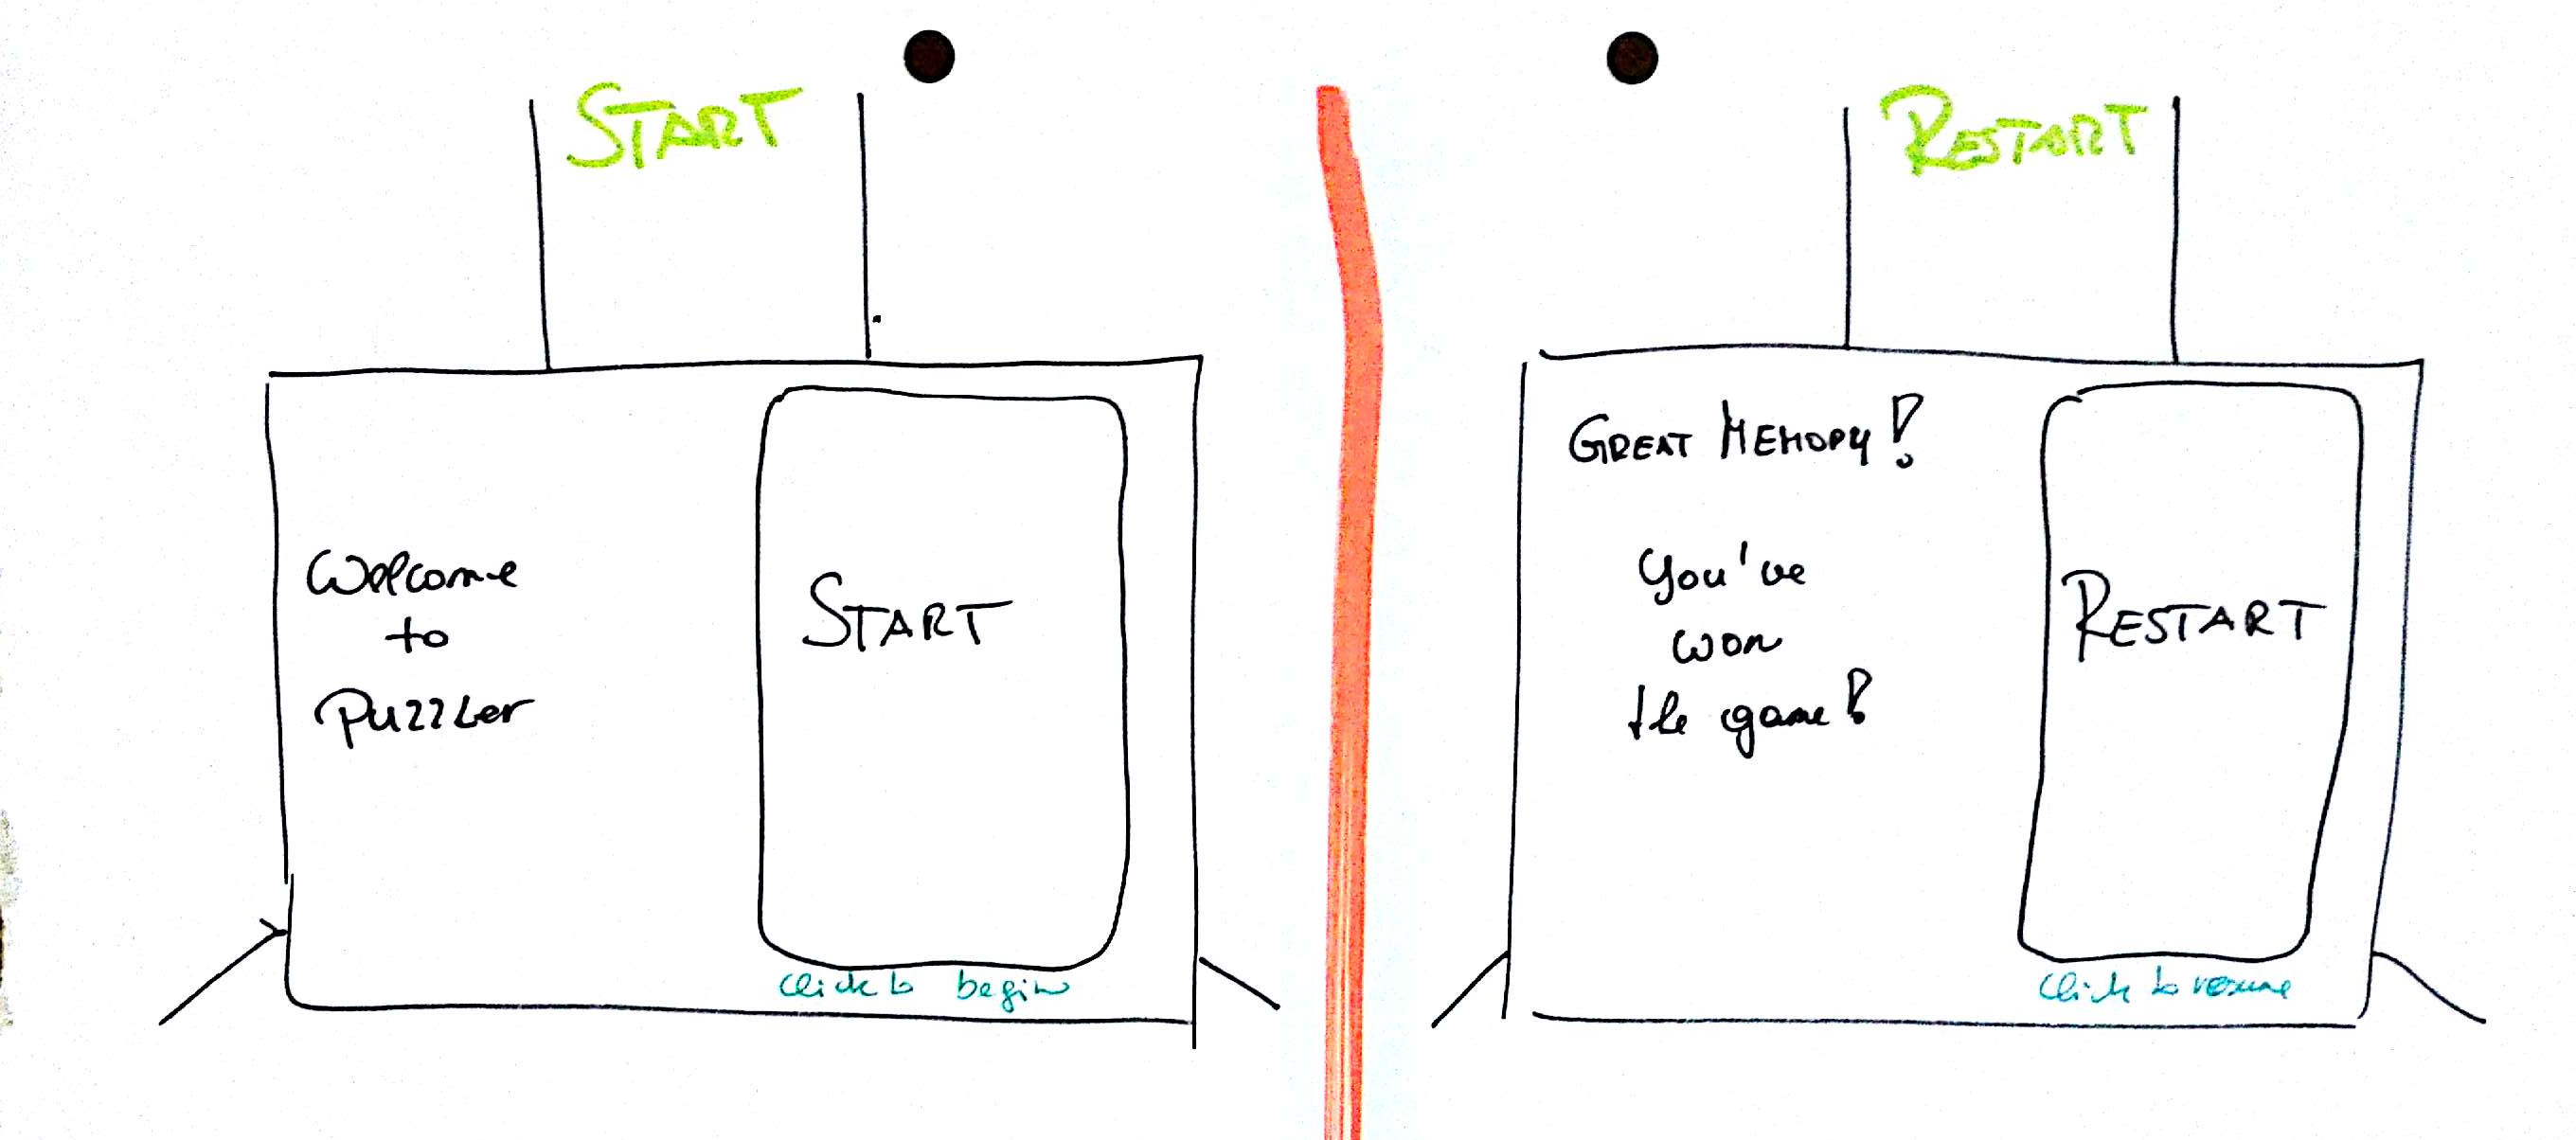 START
Welcome
to
Puzzler
START
click to begin
RESTART
GREAT MEMORY!
You've
won
the game!
RESTART
click to resume